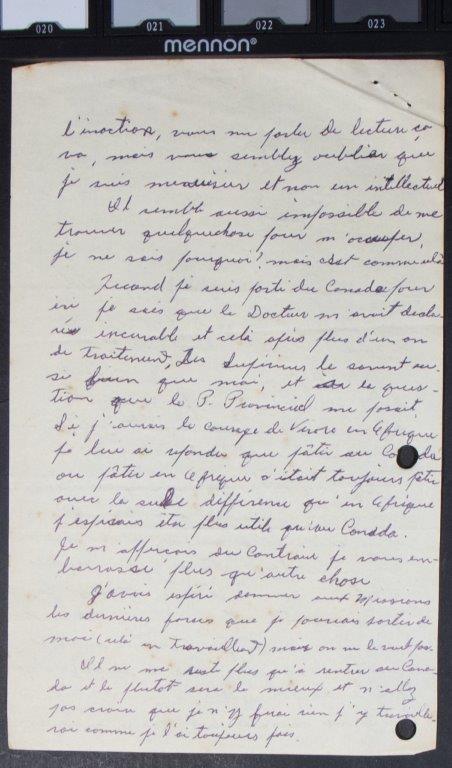 020 021 022 023
mennon®
l'inaction, vous me parler de lecture ça
va, mais vous semblez oublier que
je suis menuisier et non un intellectuel
Il semble aussi impossible de me
trouver quelquechose pour m'occuper,
je ne sais pourquoi? mais c'est comme cela
je suis parti du Canada pour
ici je sais que le Docteur m'avait décla-
ré incurable et cela après plus d'un an
de traitement, Les Supérieurs le savent aus-
si bien que moi, et la ques-
tion que le P. Provincial me posait
Si j'aurais le courage de vivre en Afrique
je lui ai répondu que pâtir au Canada
ou pâtir en Afrique c'était toujours pâtir
avec la seule différence qu'en Afrique
j'espérais être plus utile qu'au Canada.
Je m'apperçois du Contraire je vous em-
barrasse plus qu'autre chose
J'avais espéré donner aux Missions
les dernières forces que je pourrais sortir de
moi (cela en travaillant) mais on ne le veut pas.
Il ne me reste plus qu'à rentrer au Cana-
da et le plutôt sera le mieux et n'allez
pas croire que je n'y ferai rien j'y travaille-
rai comme je l'ai toujours fais.